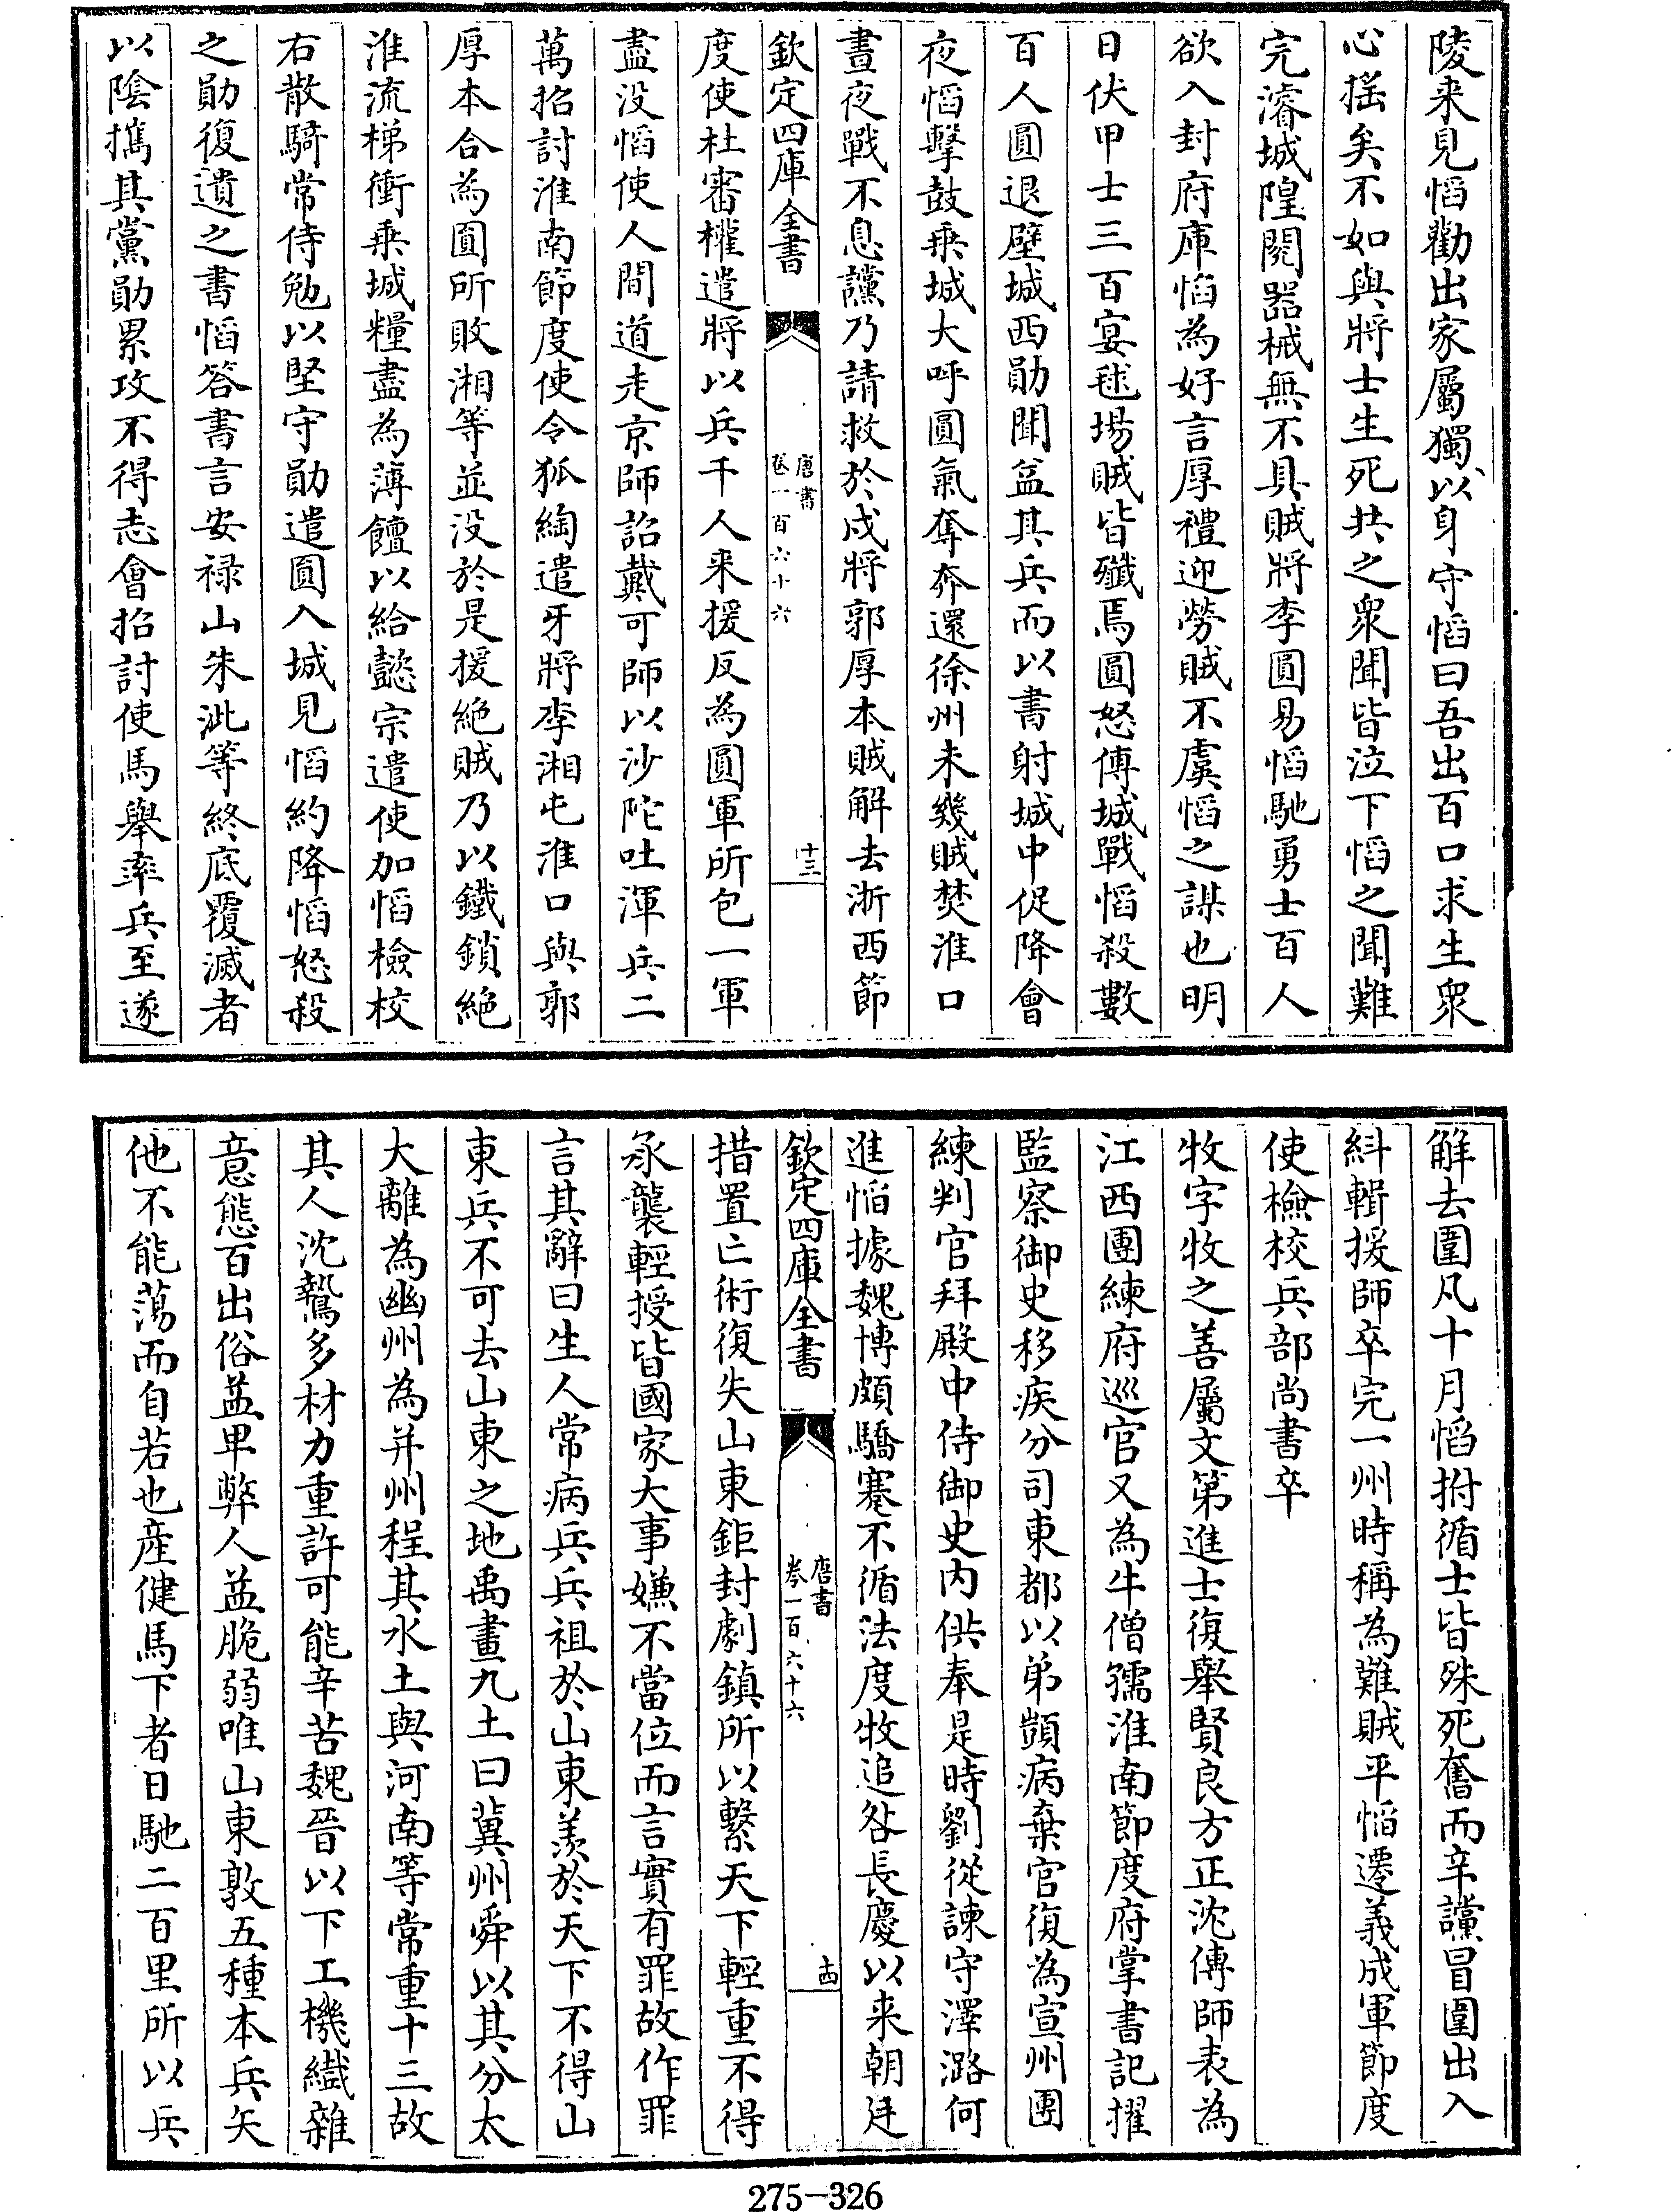 陵来見慆勸出家屬獨以身守慆曰吾出百口求生衆
心揺矣不如與將士生死共之衆聞皆泣下慆之聞難
完濬城隍閱器械無不具賊將李圓易慆馳勇士百人
欲入封府庫慆為好言厚禮迎勞賊不虞慆之謀也明
日伏甲士三百宴毬場賊皆殲焉圓怒傅城戰慆殺數
百人圓退壁城西勛聞益其兵而以書射城中促降會
夜慆擊鼓乗城大呼圓氣奪奔還徐州未幾賊焚淮口
晝夜戰不息讜乃請救於戍將郭厚本賊解去浙西節
欽定四庫全書
唐書
卷一百六十六
十三
度使杜審權遣將以兵千人来援反為圓軍所包一軍
盡没慆使人間道走京師詔戴可師以沙陀吐渾兵二
萬招討淮南節度使令狐綯遣牙將李湘屯淮口與郭
厚本合為圓所敗湘等並没於是援絶賊乃以鐵鎖絶
淮流梯衝乗城糧盡為薄饘以給懿宗遣使加慆檢校
右散騎常侍勉以堅守勛遣圓入城見慆約降慆怒殺
之勛復遺之書慆答書言安禄山朱泚等終底覆滅者
以隂攜其黨勛累攻不得志會招討使馬舉率兵至遂
解去圍凡十月慆拊循士皆殊死奮而辛讜冒圍出入
糾輯援師卒完一州時稱為難賊平慆遷義成軍節度
使檢校兵部尚書卒
牧字牧之善屬文第進士復舉賢良方正沈傳師表為
江西團練府巡官又為牛僧孺淮南節度府掌書記擢
監察御史移疾分司東都以弟顗病棄官復為宣州團
練判官拜殿中侍御史内供奉是時劉從諫守澤潞何
進慆據魏博頗驕蹇不循法度牧追咎長慶以来朝廷
欽定四庫全書
唐書
卷一百六十六
十四
措置亡術復失山東鉅封劇鎮所以繫天下輕重不得
承襲輕授皆國家大事嫌不當位而言實有罪故作罪
言其辭曰生人常病兵兵祖於山東羨於天下不得山
東兵不可去山東之地禹畫九土曰冀州舜以其分太
大離為幽州為并州程其水土與河南等常重十三故
其人沈鷙多材力重許可能辛苦魏晉以下工機纖雜
意態百出俗益卑弊人益脆弱唯山東敦五種本兵矢
他不能蕩而自若也産健馬下者日馳二百里所以兵
275-326